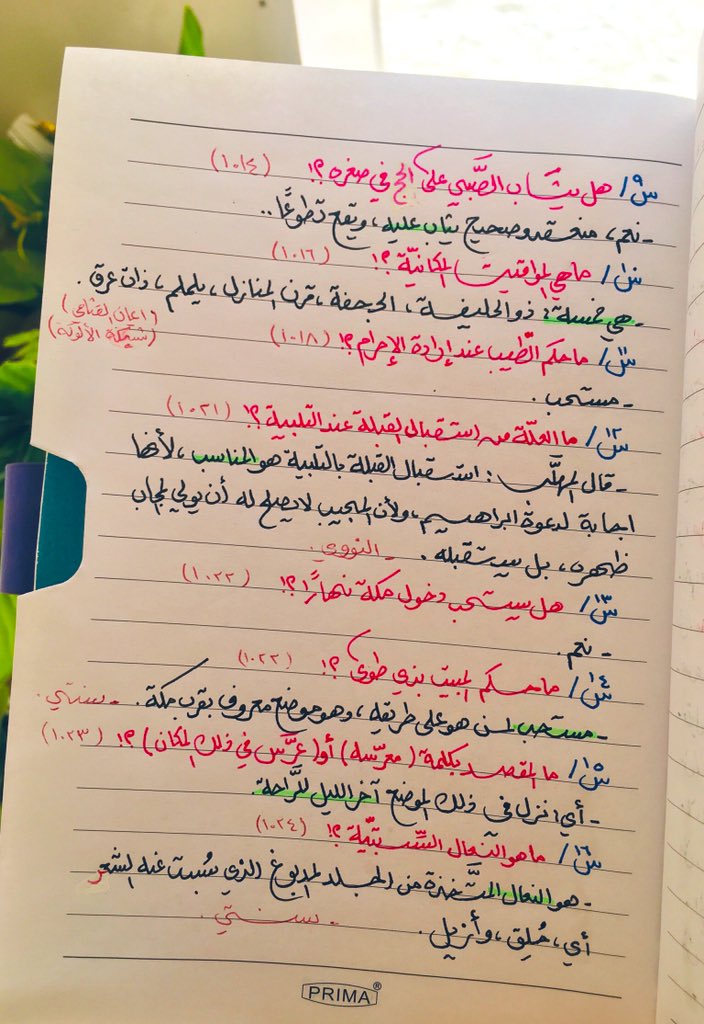 س٩/ هل يثاب الصَّبي على الحج في صغره؟! (١٠١٤)
- نعم، منعقد وصحيح يثاب عليه، ويقع تطوعًا..
س١٠/ ما هي المواقيت المكانيّة؟! (١٠١٦)
- هي خمسة: ذو الحليفة، الجحفة، قرن المنازل، يلملم، ذات عرق.
(شبكة الألوكة)
س١١/ ما حكم الطّيب عند إرادة الإحرام؟! (١٠١٨)
- مستحب.
س١٢/ ما العلّة من استقبال القبلة عند التلبية؟! (١٠٢١)
- قال المهلَّب: استقبال القبلة بالتلبية هو المناسب، لأنها
اجابة لدعوة ابراهيم، ولأن المجيب لا يصلح له أن يولي المجاب
ظهره، بل يستقبله. - النووي.
س١٣/ هل يستحب دخول مكة نهارًا؟! (١٠٢٢)
- نعم.
س١٤/ ما حكم المبيت بذي طوى؟! (١٠٢٢)
- مستحب لمن هو على طريقه، وهو موضع معروف بقرب مكة. - سنتي.
س١٥/ ما المقصد بكلمة (معرّسه) أو (عرَّس في ذلك المكان)؟! (١٠٢٣)
- أي انزل في ذلك الموضع آخر الليل للرَّاحة.
س١٦/ ما هو النعال السِّبتيّة؟! (١٠٢٤)
- هو النعال المتَّخذة من الجلد المدبوغ الذي سُبت عنه الشعر
أي، حُلِق، وأزيل. - سنتي.
PRIMA®